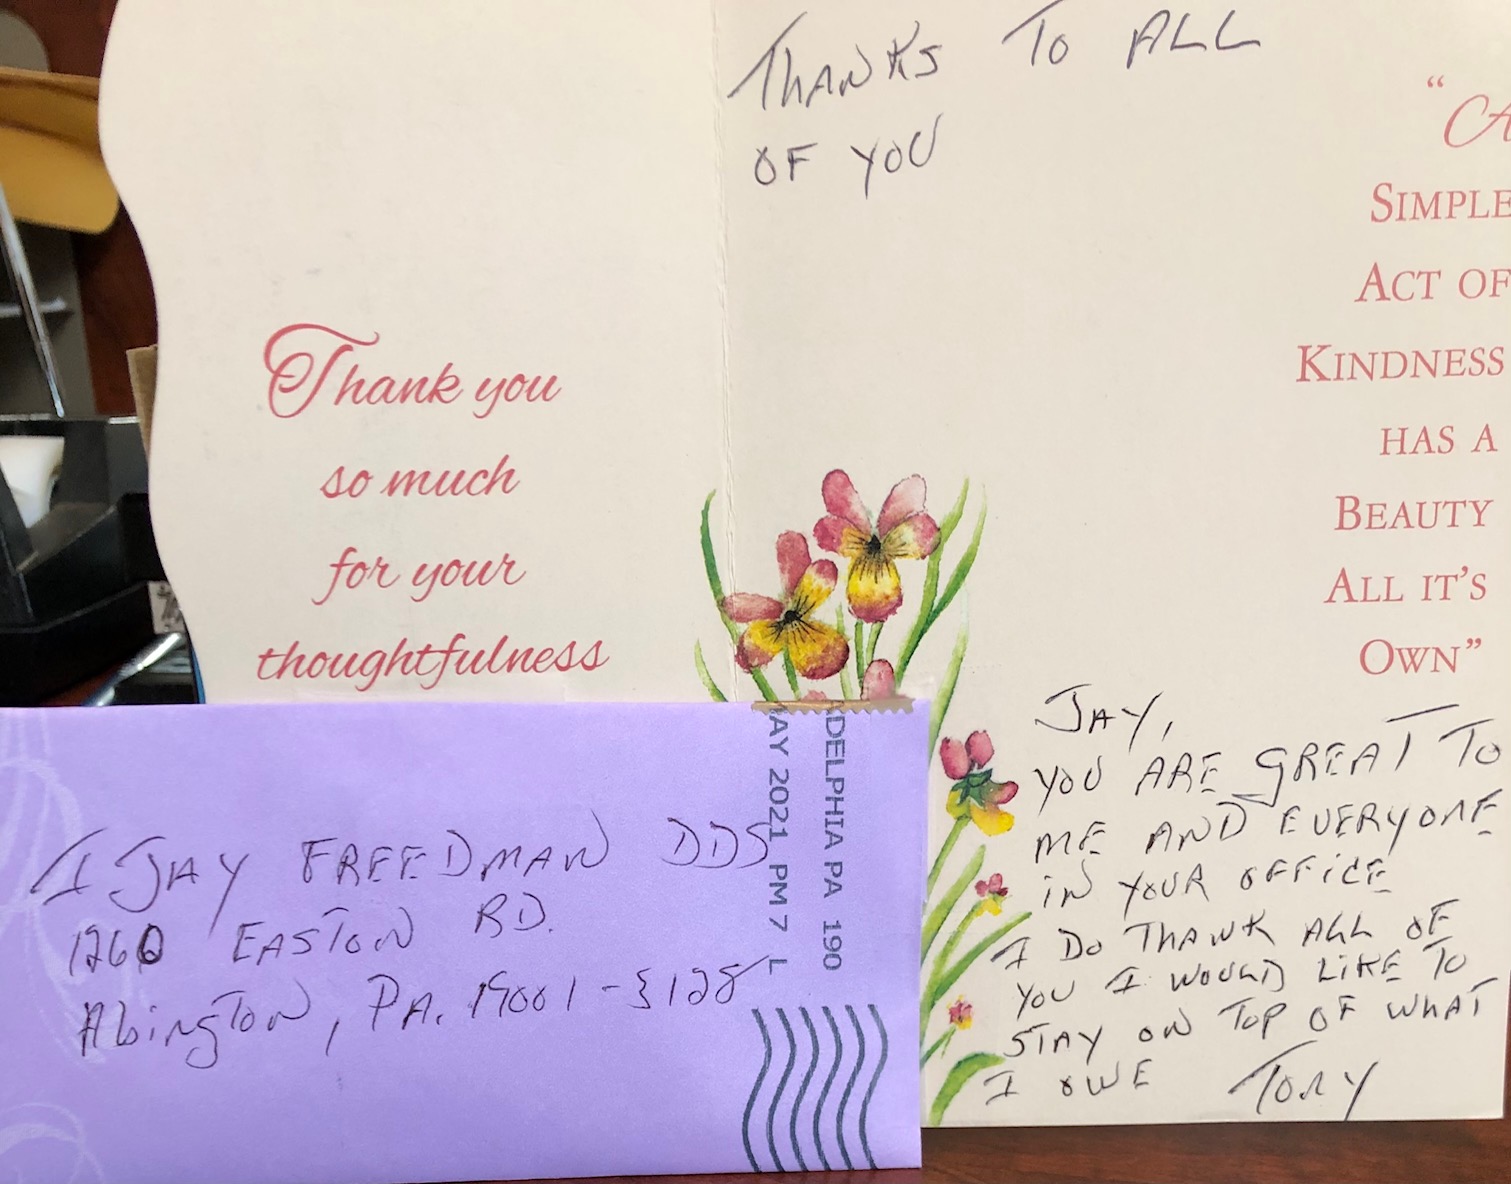 THANKS TO ALL
OF YOU
Thank you
so much
for your
thoughtfulness
"A
SIMPLE
ACT OF
KINDNESS
HAS A
BEAUTY
ALL IT'S
OWN"
JAY,
YOU ARE GREAT TO
ME AND EVERYONE
IN YOUR OFFICE
I DO THANK ALL OF
YOU I WOULD LIKE TO
STAY ON TOP OF WHAT
I OWE TORY
I JAY FREEDMAN DDS
1260 EASTON RD.
AbingTON, PA. 19001-3128
ADELPHIA PA 190
MAY 2021 PM 7 L